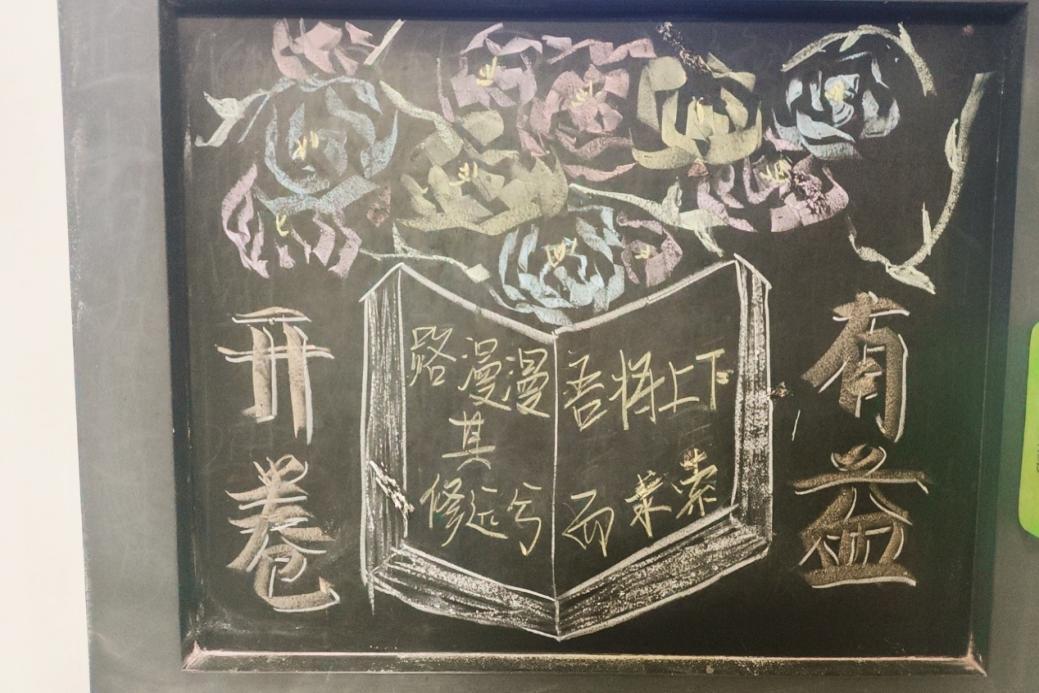 开卷
路漫漫
其
修远兮
吾将上下
而求索
有益